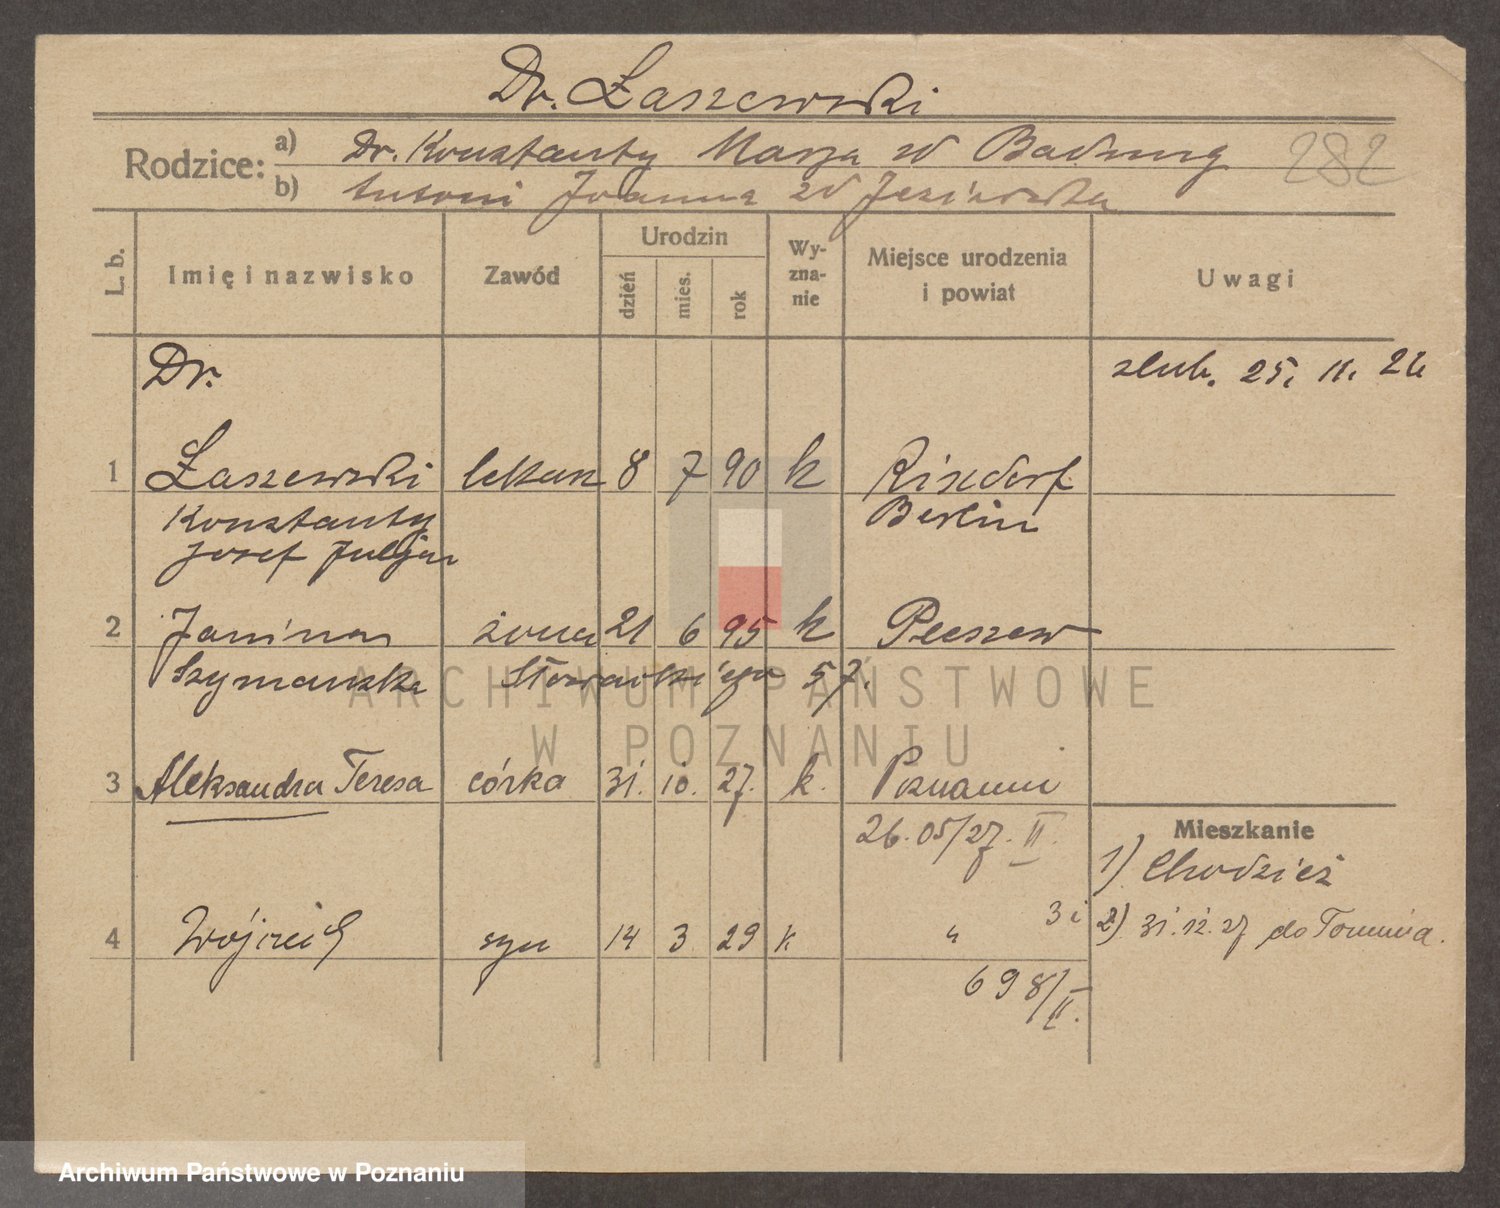 Dr. Łaszewski
Rodzice: a) Dr. Konstanty Marja zd Badzung
b) Antoni Joanna zd Jezi
282
L. b. Imię i nazwisko Zawód Urodzin dzień mies. rok Wy-zna-nie Miejsce urodzenia i powiat Uwagi
Dr. zlub. 25. 11. 26
1 Łaszewski lekarz 8 7 90 k Rixdorf
Konstanty Berlin
Josef Juljan
2 Janina żona 21 6 95 k Pleszew
Szymańska Słowackiego 57.
3 Aleksandra Teresa córka 31. 10. 27. k. Poznaniu
26.05/27. II.
Mieszkanie
1) Chodzież
4 Wójciech syn 14 3 29 k "
2) 31.12.27 do Torunia.
698/II.
ARCHIWUM PAŃSTWOWE
W POZNANIU
Archiwum Państwowe w Poznaniu